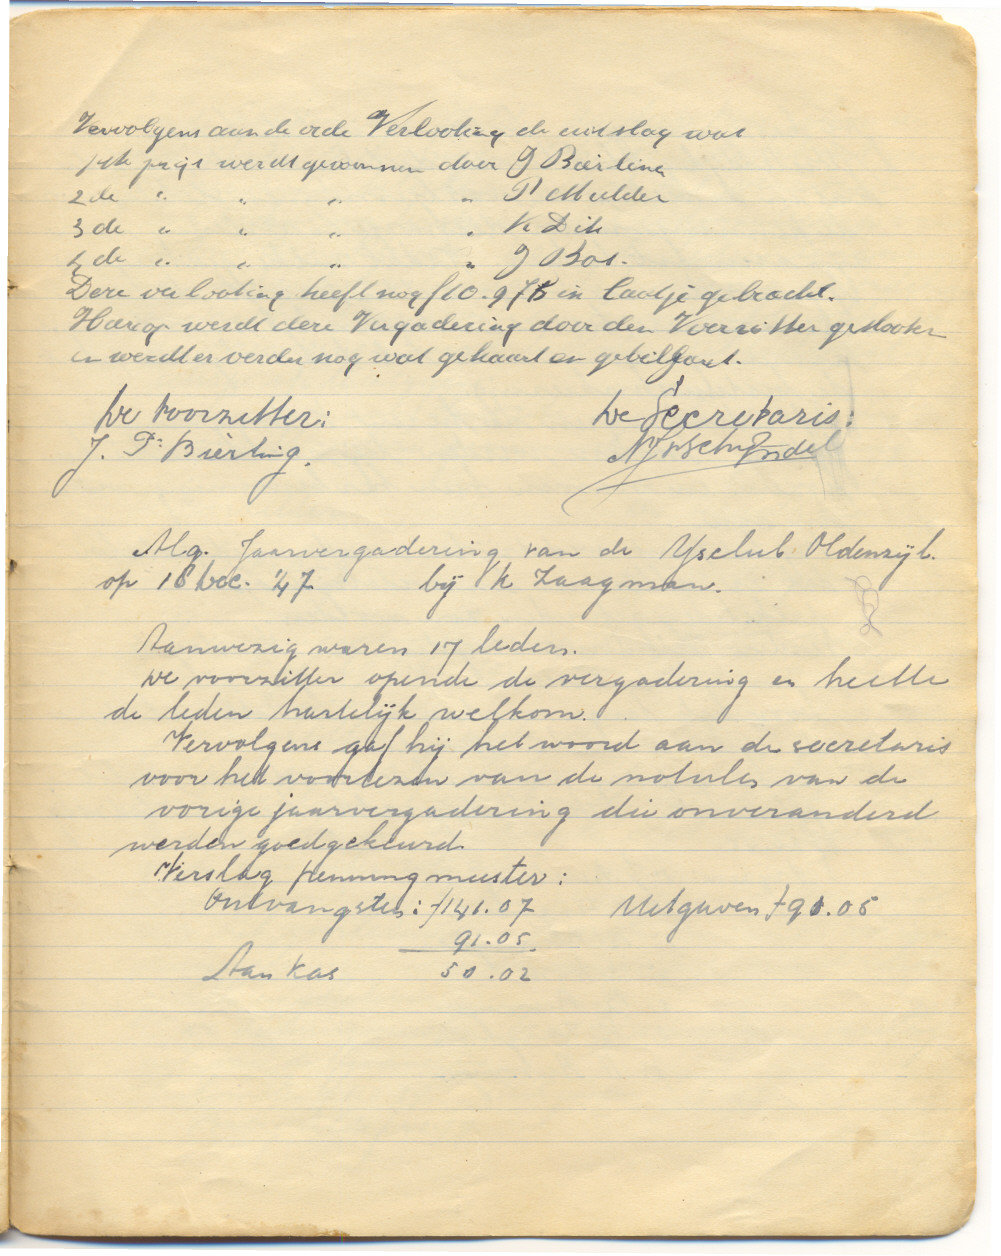 Vervolgens aan de orde Verlooting de uitslag was
1ste prijs werdt gewonnen door J Bierling
2de " " " " P Mulder
3de " " " " K Dik
4de " " " " J Bos.
Deze verlooting heeft nog f 10.975 in laatje gebracht.
Hierop werdt deze Vergadering door den Voorzitter geslooten
en werdt er verder nog wat gekaart en gebiljart.
De Voorzitter: De Secretaris:
J. P. Bierling.
Alg. Jaarvergadering van de Ysclub Oldenzijl.
op 18 Dec. '47 bij K Zaagman.
Aanwezig waren 17 leden.
De voorzitter opende de vergadering en heette
de leden hartelijk welkom.
Vervolgens gaf hij het woord aan de secretaris
voor het voorlezen van de notules van de
vorige jaarvergadering die onveranderd
werden goedgekeurd.
Verslag penningmeester:
Ontvangsten: f 141.07 Uitgaven f 91.05
91.05
Aan kas 50.02